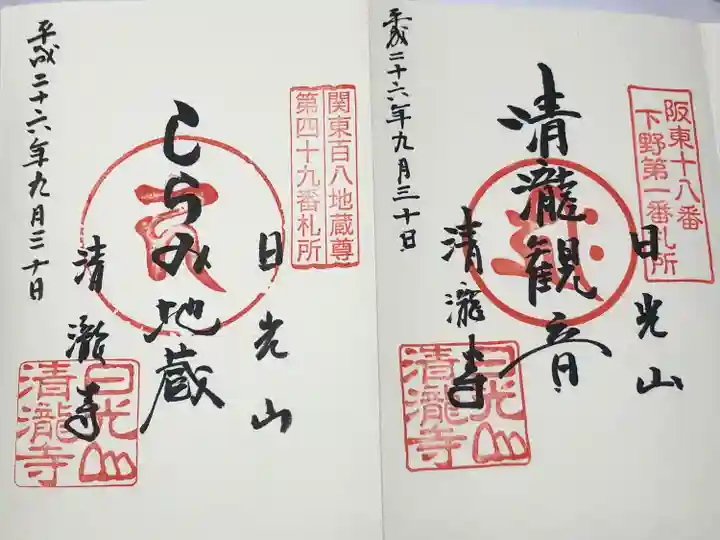 阪東十八番
下野第一番札所
日光山
清瀧観音
清瀧寺
平成二十六年九月三十日
日光山
清瀧寺
関東百八地蔵尊
第四十九番札所
日光山
しらみ地蔵
清瀧寺
平成二十六年九月三十日
日光山
清瀧寺